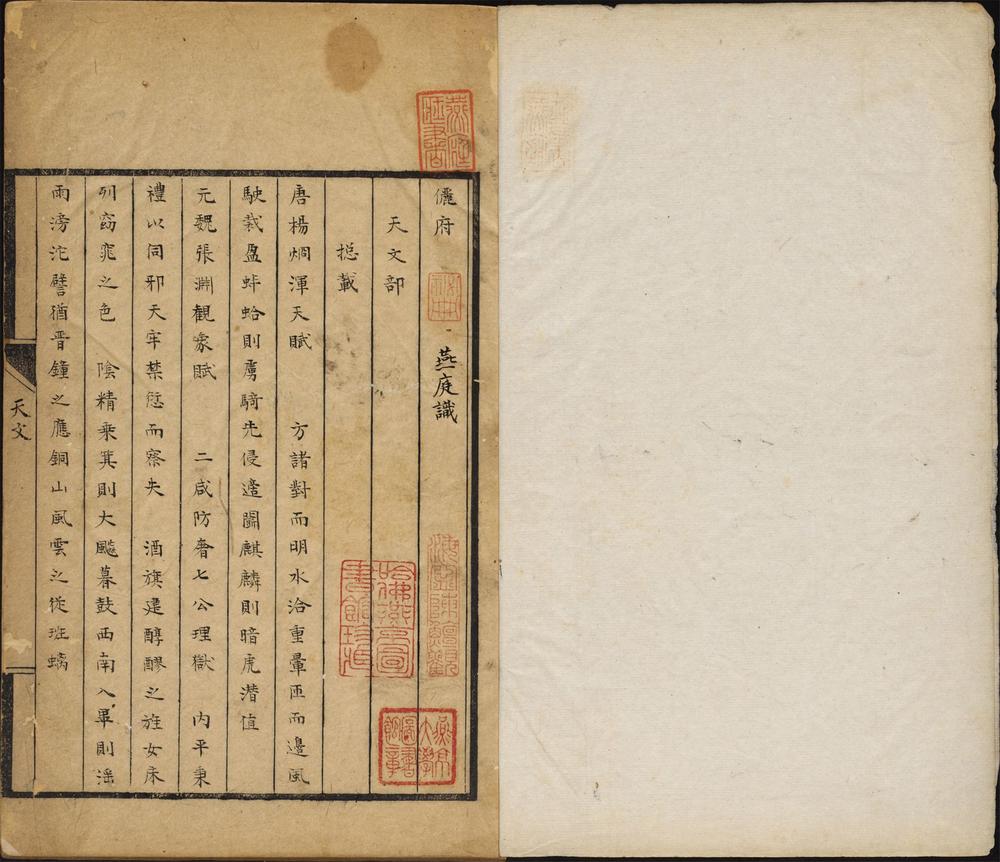 儷府　燕庭識
天文部
捴載
唐楊烱渾天賦　方諸對而明水洽重暈匝而邊風
駛裁盈蚌蛤則虜騎先侵遼鬬麒麟則暗虎潛值
元魏張淵觀象賦　二咸防奢七公理獄　內平秉
禮以伺邪天牢禁愆而察失　酒旗建醇醪之旌女床
列窈窕之色　陰精乘箕則大飈暮鼓西南入畢則淫
雨滂沱譬猶晋鐘之應銅山風雲之從班螭
天文
哈佛燕京圖書館珍藏
燕京大學圖書館章